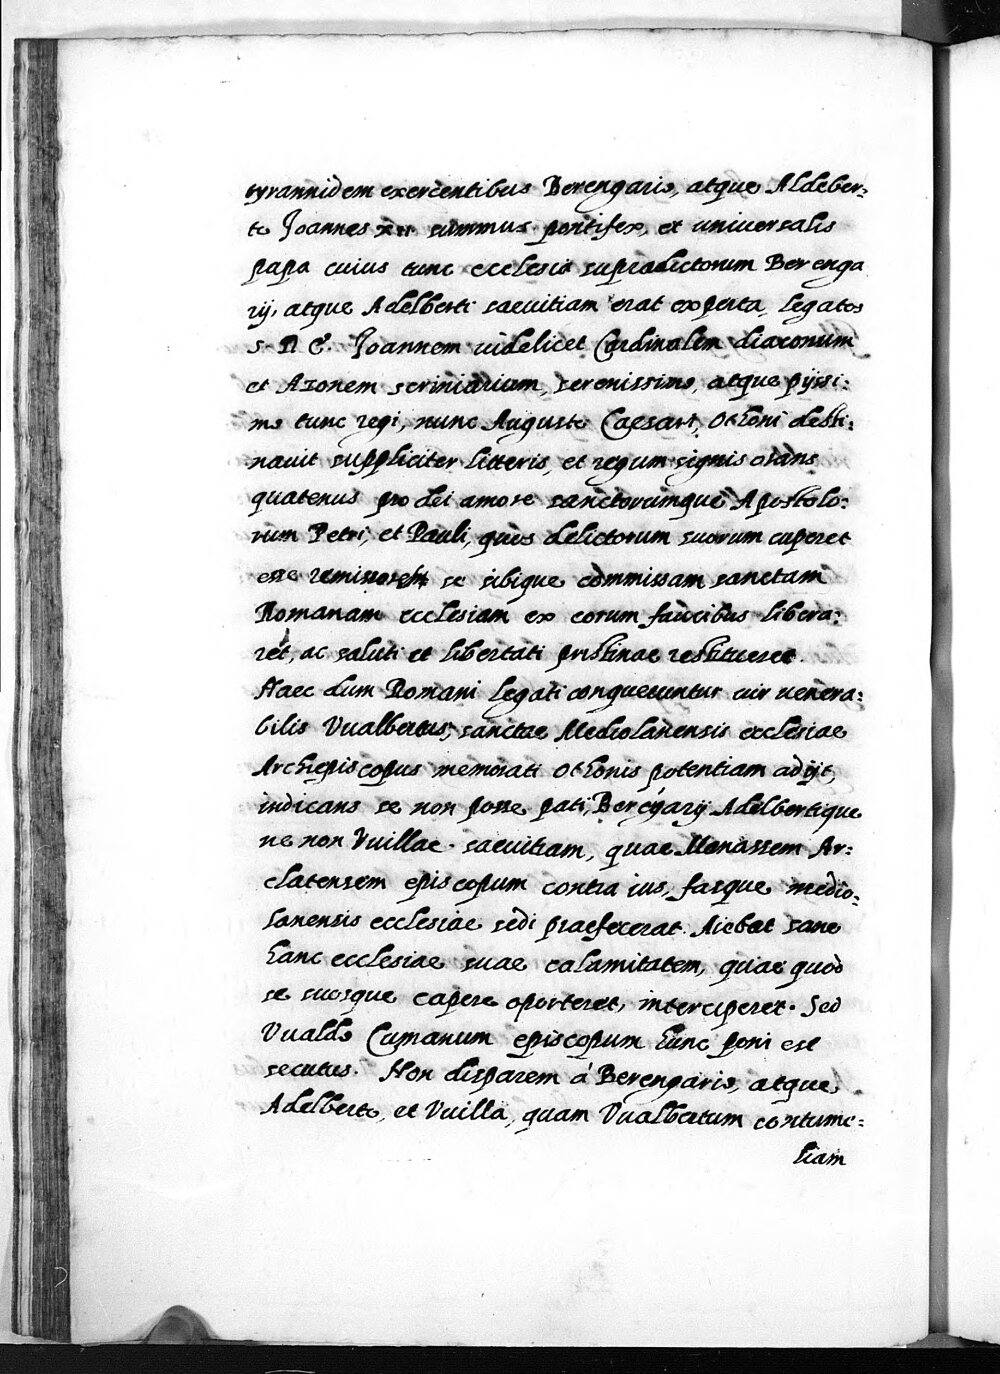 tyrannidem exercentibus Berengario, atque Aldeber=
to Joannes xii summus pontifex, et universalis
papa cuius tunc ecclesia supradictorum Berenga
rij, atque Adelberti saevitiam erat experta, legatos
S. R. E. Joannem videlicet Cardinalem diaconum
et Azonem scriniarium, serenissimo, atque pijssi:
mo tunc regi, nunc Augusto Caesari, Othoni desti:
navit suppliciter litteris, et regum signis orans
quatenus pro dei amore sanctorumque Apostolo:
rum Petri, et Pauli, quos delictorum suorum cuperet
esse remissores se sibique commissam sanctam
Romanam ecclesiam ex eorum faucibus libera:
ret, ac saluti et libertati pristinae restitueret.
Haec dum Romani legati conqueruntur vir venera:
bilis Vualbertus, sanctae Mediolanensis ecclesiae
Archiepiscopus memorati Othonis potentiam adijt,
indicans se non posse pati, Berengarij Adelbertique
ne non Vuillae saevitiam, quae Manassem Ar:
elatensem episcopum contra ius, fasque medio:
lanensis ecclesiae sedi praefecerat. Aiebat sane
hanc ecclesiae suae calamitatem, quae quod
se suosque capere oporteret, interciperet. Sed
Vualdo Cumanum episcopum hunc poni est
secutus. Non disparem à Berengario, atque
Adelberto, et Vuilla, quam Vualbertum contume=
liam